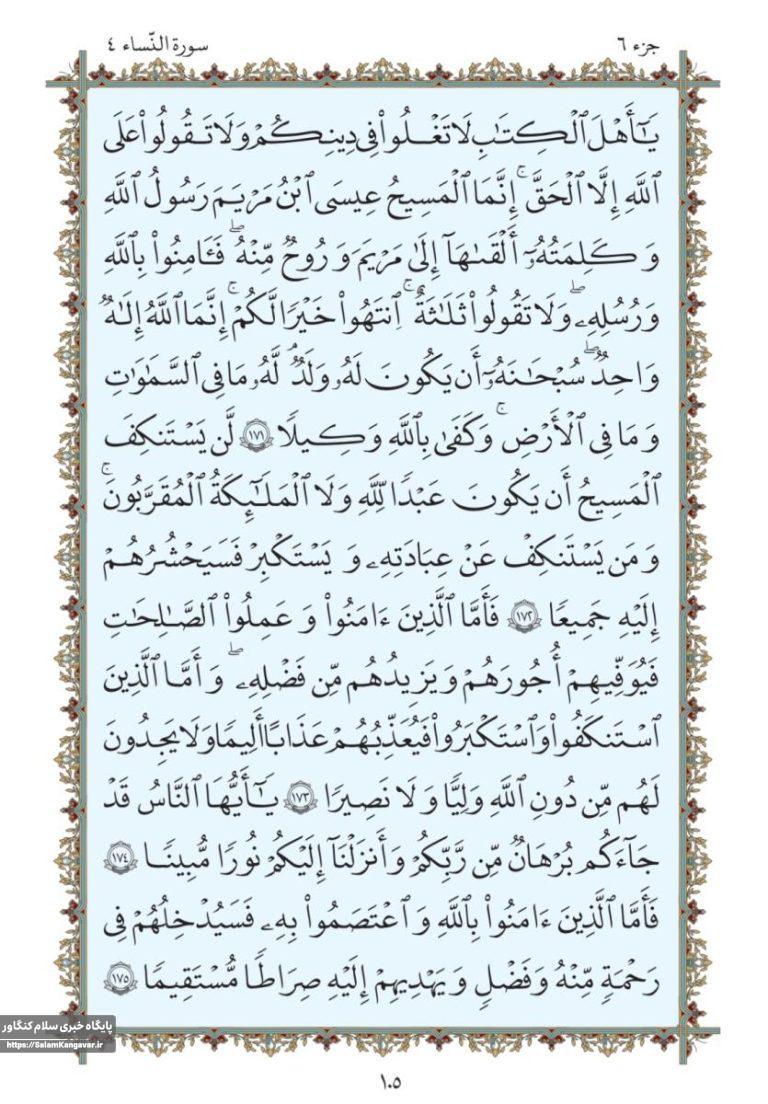 جزء ٦
سورة النّساء ٤
يَـٰٓأَهۡلَ ٱلۡكِتَـٰبِ لَا تَغۡلُواْ فِى دِينِكُمۡ وَلَا تَقُولُواْ عَلَى
ٱللَّهِ إِلَّا ٱلۡحَقَّۚ إِنَّمَا ٱلۡمَسِيحُ عِيسَى ٱبۡنُ مَرۡيَمَ رَسُولُ ٱللَّهِ
وَكَلِمَتُهُۥٓ أَلۡقَىٰهَآ إِلَىٰ مَرۡيَمَ وَرُوحٌ مِّنۡهُۖ فَـَٔامِنُواْ بِٱللَّهِ
وَرُسُلِهِۦۖ وَلَا تَقُولُواْ ثَلَـٰثَةٌۚ ٱنتَهُواْ خَيۡرًا لَّكُمۡۚ إِنَّمَا ٱللَّهُ إِلَـٰهٌ
وَٰحِدٌۖ سُبۡحَـٰنَهُۥٓ أَن يَكُونَ لَهُۥ وَلَدٌۘ لَّهُۥ مَا فِى ٱلسَّمَـٰوَٰتِ
وَمَا فِى ٱلۡأَرۡضِۗ وَكَفَىٰ بِٱللَّهِ وَكِيلًا ١٧١ لَّن يَسۡتَنكِفَ
ٱلۡمَسِيحُ أَن يَكُونَ عَبۡدًا لِّلَّهِ وَلَا ٱلۡمَلَـٰٓئِكَةُ ٱلۡمُقَرَّبُونَۚ
وَمَن يَسۡتَنكِفۡ عَنۡ عِبَادَتِهِۦ وَيَسۡتَكۡبِرۡ فَسَيَحۡشُرُهُمۡ
إِلَيۡهِ جَمِيعًا ١٧٢ فَأَمَّا ٱلَّذِينَ ءَامَنُواْ وَعَمِلُواْ ٱلصَّـٰلِحَـٰتِ
فَيُوَفِّيهِمۡ أُجُورَهُمۡ وَيَزِيدُهُم مِّن فَضۡلِهِۦۖ وَأَمَّا ٱلَّذِينَ
ٱسۡتَنكَفُواْ وَٱسۡتَكۡبَرُواْ فَيُعَذِّبُهُمۡ عَذَابًا أَلِيمًا وَلَا يَجِدُونَ
لَهُم مِّن دُونِ ٱللَّهِ وَلِيًّا وَلَا نَصِيرًا ١٧٣ يَـٰٓأَيُّهَا ٱلنَّاسُ قَدۡ
جَآءَكُم بُرۡهَـٰنٌ مِّن رَّبِّكُمۡ وَأَنزَلۡنَآ إِلَيۡكُمۡ نُورًا مُّبِينًا ١٧٤
فَأَمَّا ٱلَّذِينَ ءَامَنُواْ بِٱللَّهِ وَٱعۡتَصَمُواْ بِهِۦ فَسَيُدۡخِلُهُمۡ فِى
رَحۡمَةٍ مِّنۡهُ وَفَضۡلٍ وَيَهۡدِيهِمۡ إِلَيۡهِ صِرَٰطًا مُّسۡتَقِيمًا ١٧٥
پایگاه خبری سلام کنگاور
https://SalamKangavar.ir
١٠٥